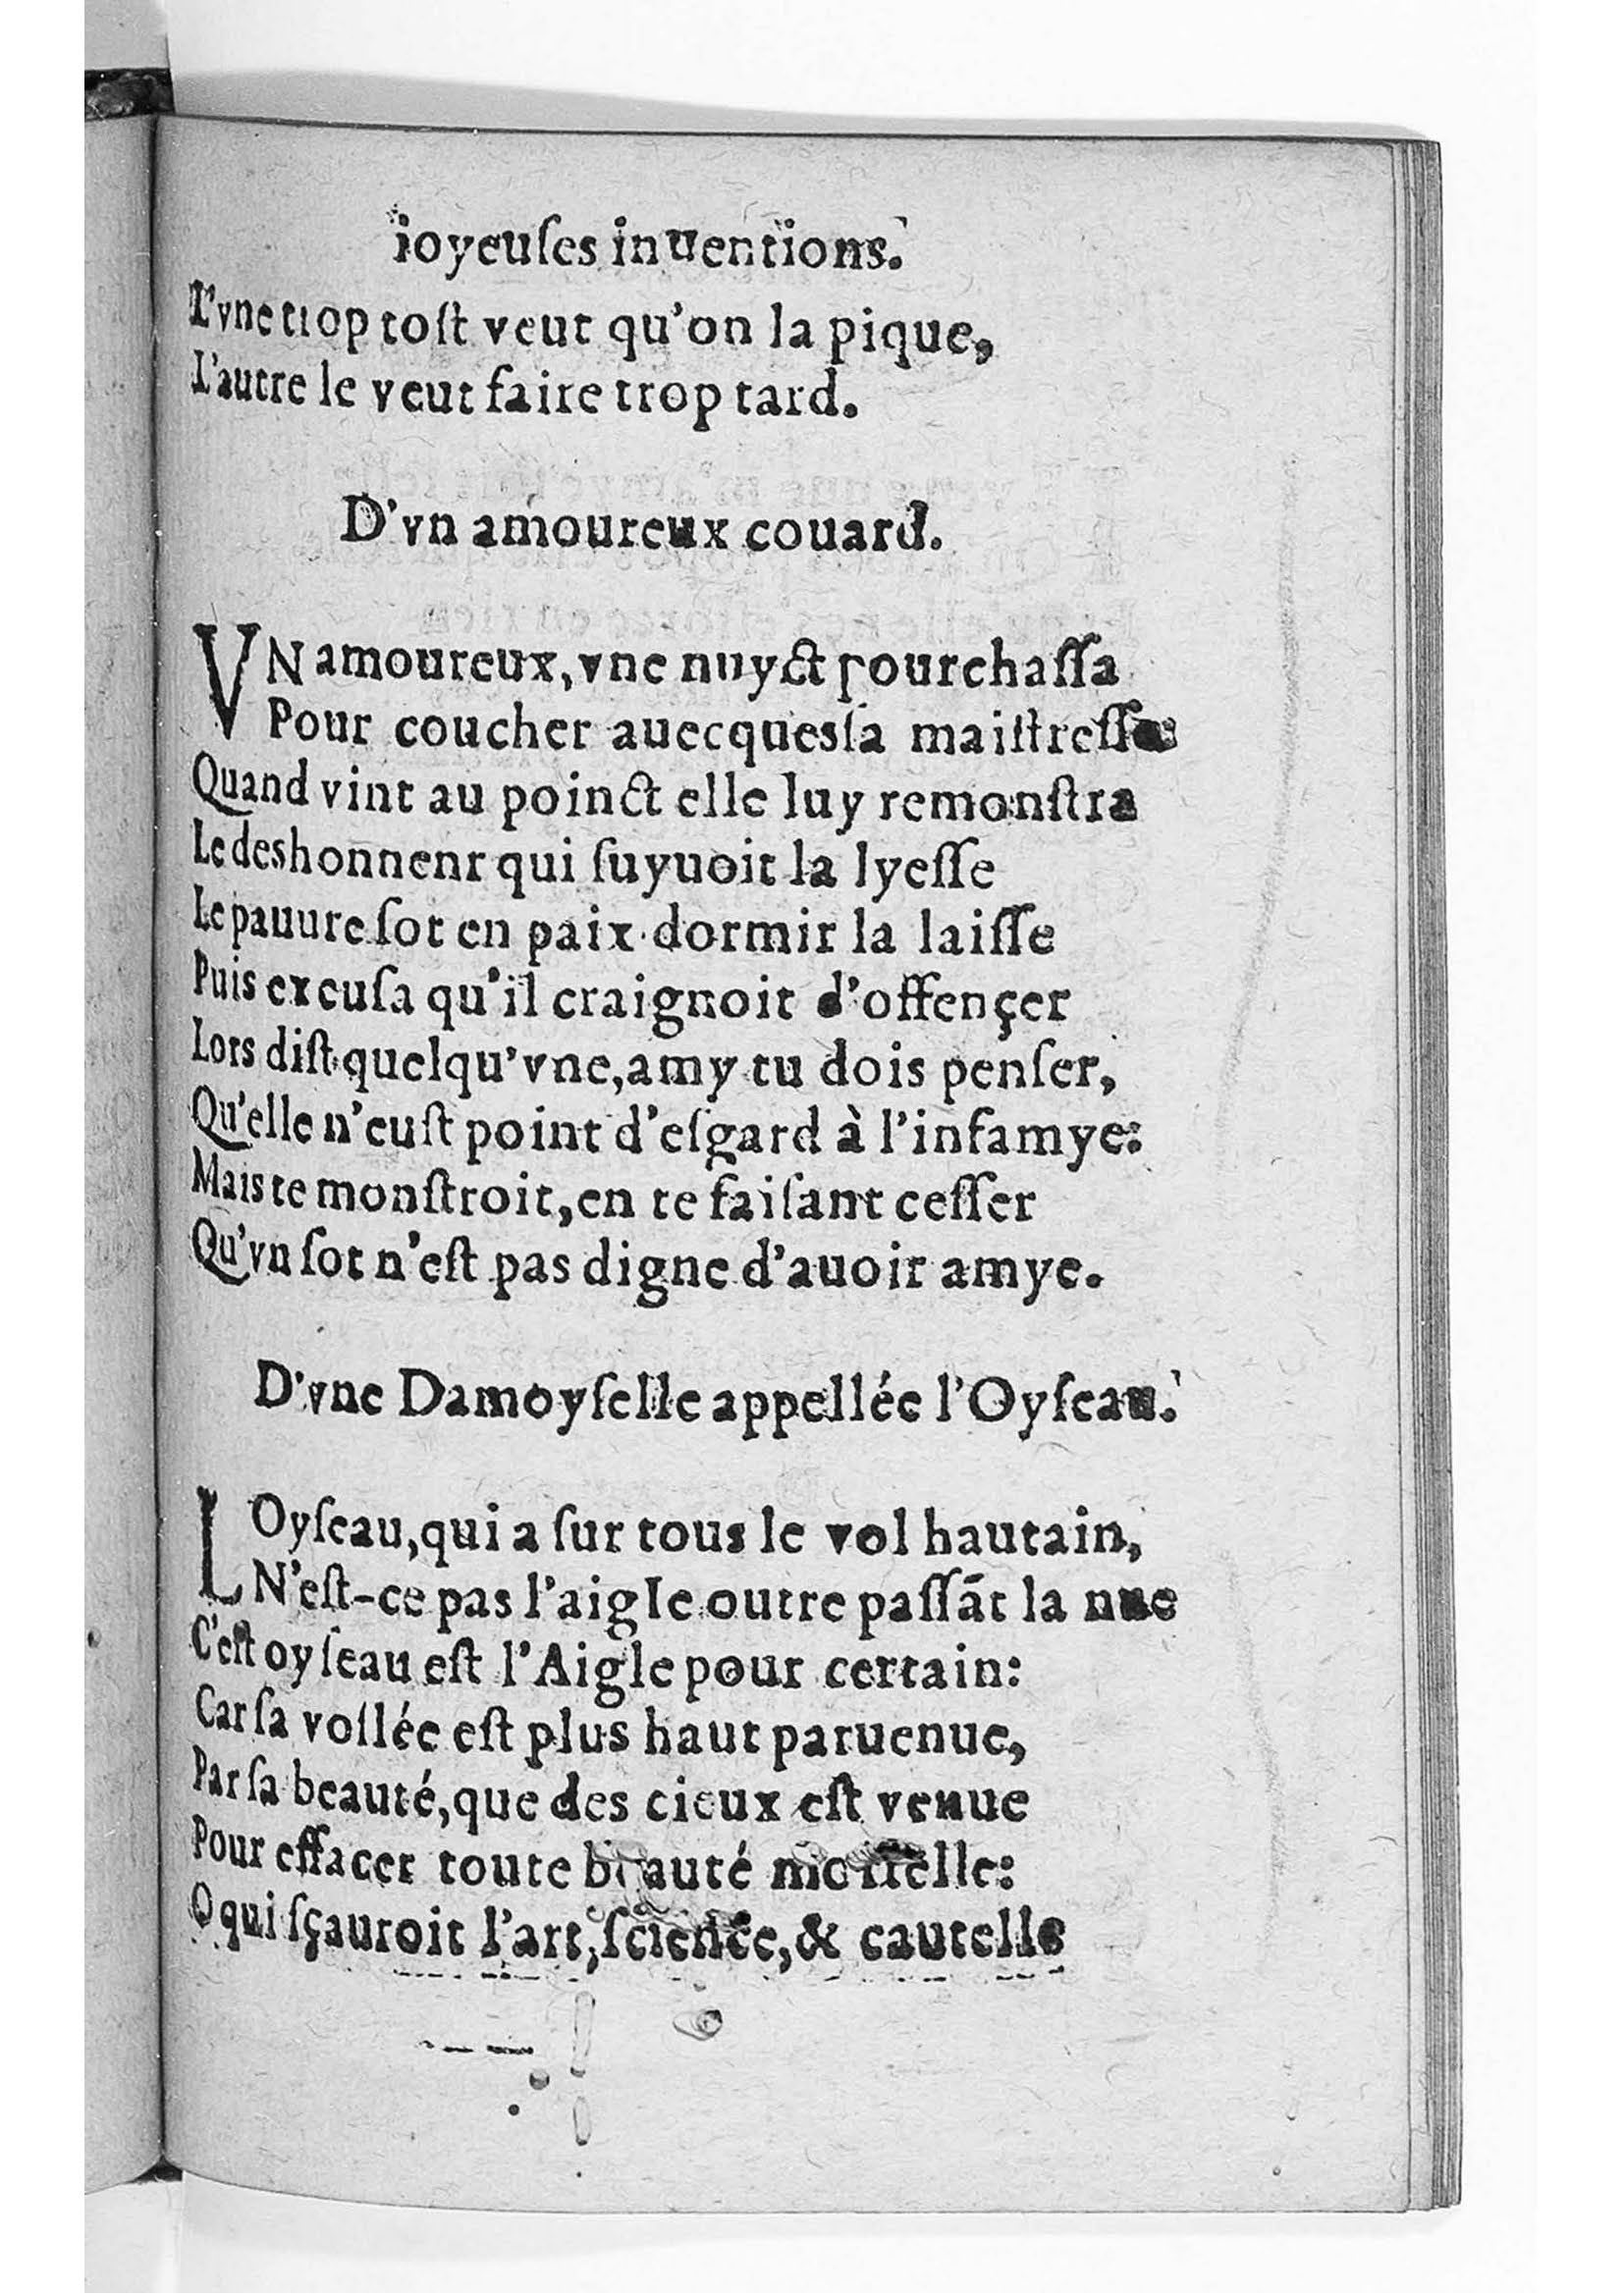 ioyeuſes inuentions.
L'vne trop toſt veut qu'on la pique,
L'autre le veut faire trop tard.
D'vn amoureux couard.
VN amoureux, vne nuyct pourchaſſa
Pour coucher auecques ſa maiſtreſſe
Quand vint au poinct elle luy remonſtra
Le deshonnenr qui ſuyuoit la lyeſſe
Le pauure ſot en paix dormir la laiſſe
Puis excuſa qu'il craignoit d'offençer
Lors diſt quelqu'vne, amy tu dois penſer,
Qu'elle n'euſt point d'eſgard à l'infamye:
Mais te monſtroit, en te faiſant ceſſer
Qu'vn ſot n'eſt pas digne d'auoir amye.
D'vne Damoyſelle appellée l'Oyſeau.
LOyſeau, qui a ſur tous le vol hautain,
N'eſt-ce pas l'aigle outre paſſãt la nue
C'eſt oyſeau eſt l'Aigle pour certain:
Car ſa vollée eſt plus haut paruenue,
Par ſa beauté, que des cieux eſt venue
Pour effacer toute beauté mortelle:
O qui ſçauroit l'art, ſcience, & cautelle